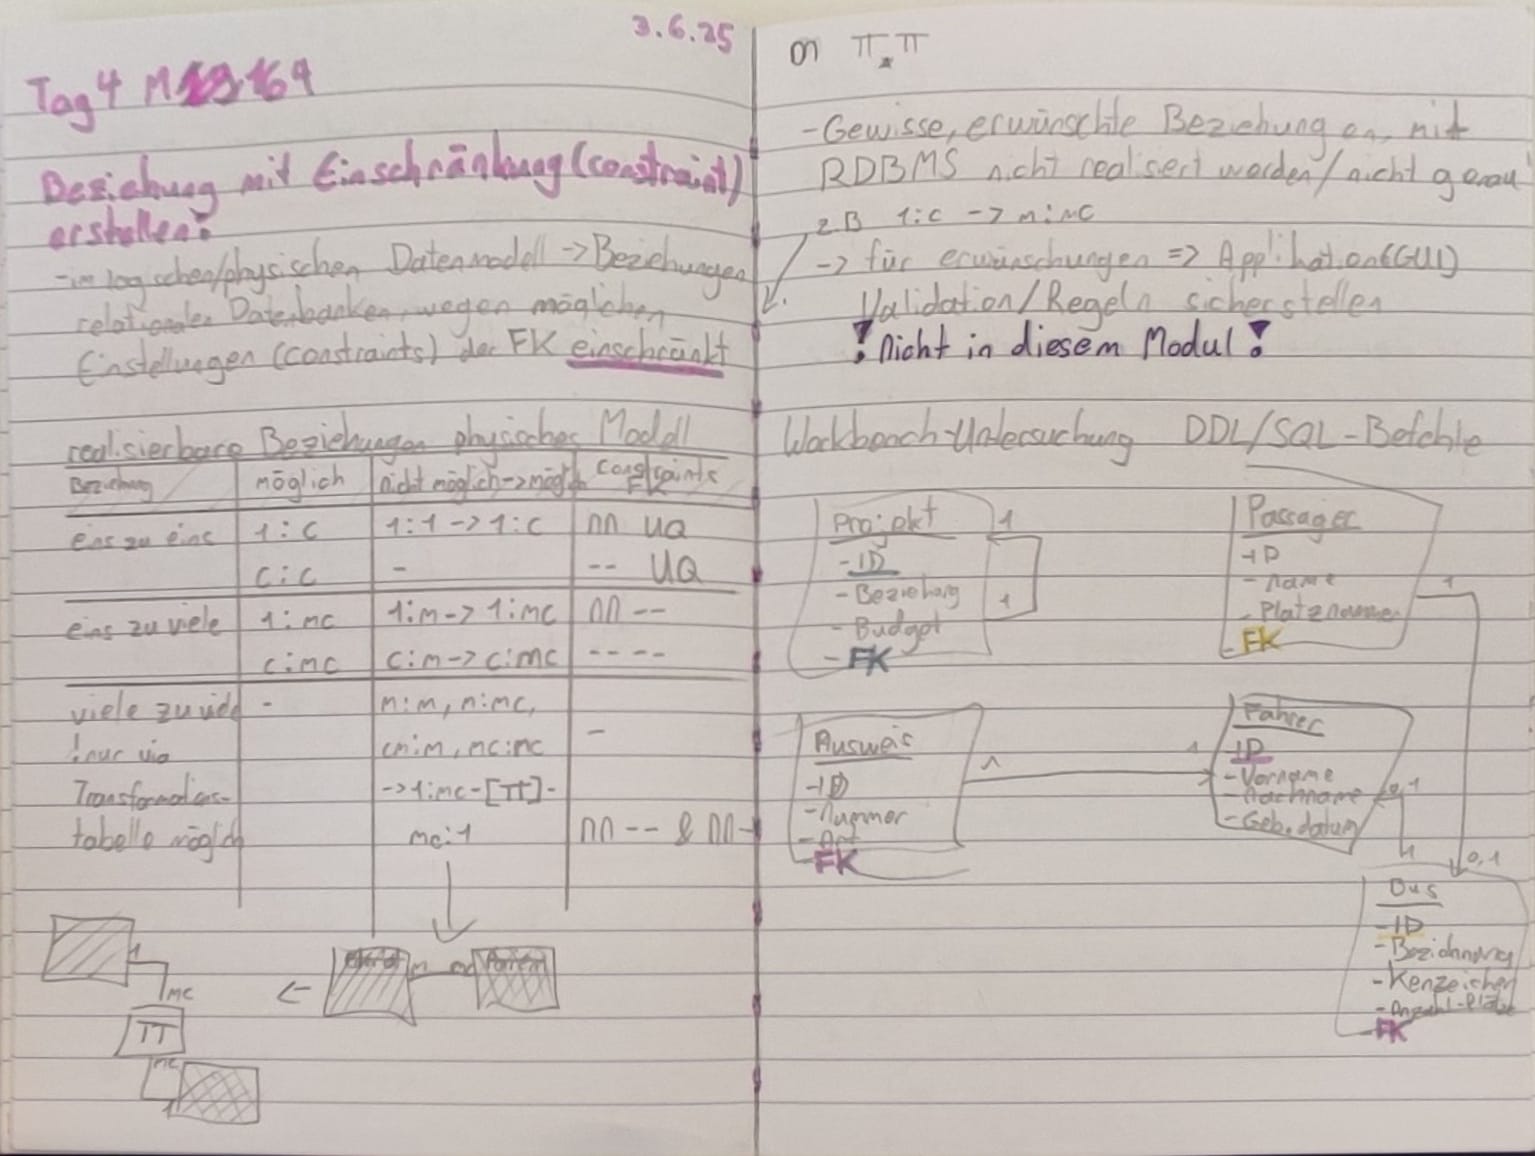 3.6.25
Tag 4 M 164
Beziehung mit Einschränkung (constraint)
erstellen:
-im logischen/physischen Datenmodell -> Beziehungen
relationaler Datenbanken, wegen möglichen
Einstellungen (constraints) der FK einschränkt
realisierbare Beziehungen physisches Modell
Beziehung möglich nicht möglich->möglich constraints FK
eins zu eins 1:c 1:1 -> 1:c nn UQ
c:c - -- UQ
eins zu viele 1:mc 1:m -> 1:mc nn --
c:mc c:m -> c:mc -- --
viele zu viele - m:m, m:mc,
!nur via cm:m, mc:mc -
Transformations- -> 1:mc-[TT]-
tabelle möglich mc:1 nn -- & nn-
1
mc
TT
mc
1
-Gewisse, erwünschte Beziehungen, mit
RDBMS nicht realisiert werden/nicht genau
z.B 1:c -> m:mc
-> für erwünschungen => Applikation(GUI)
Validation/Regeln sicherstellen
! nicht in diesem Modul !
Workbench-Untersuchung DDL/SQL-Befehle
Projekt
-ID
-Beziehung
-Budget
-FK
1
1
Passager
-ID
-name
-Platznummer
-FK
1
0,1
Ausweis
-ID
-nummer
-Art
-FK
1
1
Fahrer
-ID
-Vorname
-nachname
-Geb.datum
0,1
1
Bus
-ID
-Bezichnung
-Kenzeichen
-Anzahl-Plätze
-FK